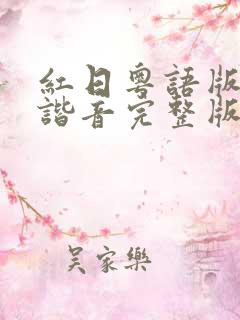 紅日粵語版
諧音完整版
吴家樂